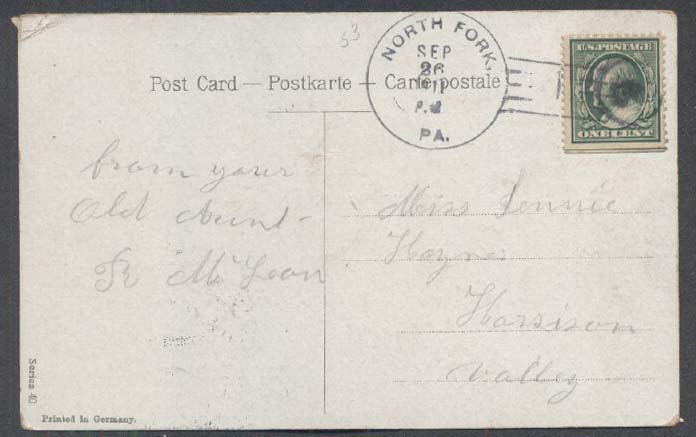 53
NORTH FORK,
SEP
26
P.M
PA.
U.S. POSTAGE
ONE CENT
Post Card — Postkarte — Carte postale
from your
Old Aunt
McLean
Miss Jennie
Haynes
Harrison
Valley
Series 40
Printed in Germany.